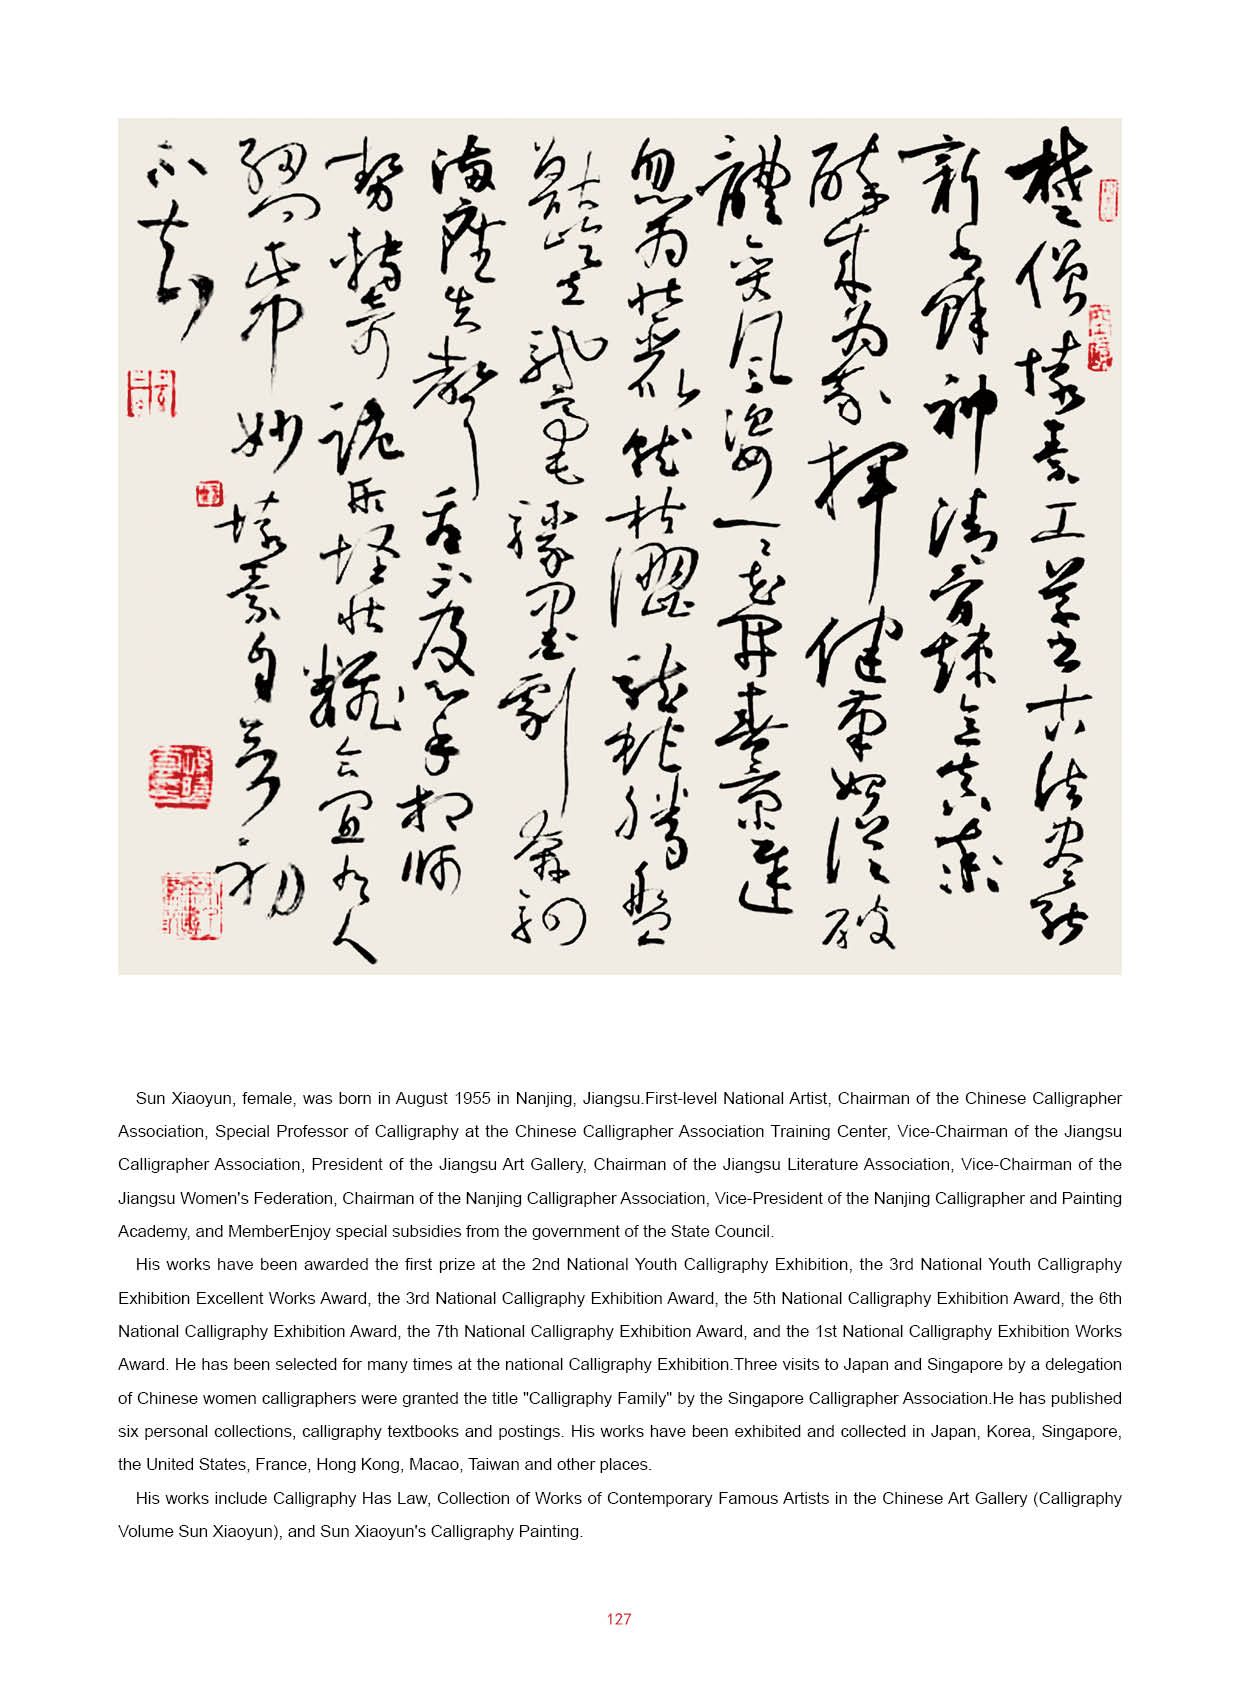 楚僧懷素工草書古法盡能
新有餘神清骨竦意真率
醉來為我揮健筆始從破
體變風姿一一花開春景遲
忽為壯麗就枯澀龍蛇騰盤
獸屹立馳毫驟墨劇奔駟
滿座失聲看不及心手相師
勢轉奇詭形怪狀翻合宜有人
細問此中妙懷素自言初
不知
Sun Xiaoyun, female, was born in August 1955 in Nanjing, Jiangsu.First-level National Artist, Chairman of the Chinese Calligrapher
Association, Special Professor of Calligraphy at the Chinese Calligrapher Association Training Center, Vice-Chairman of the Jiangsu
Calligrapher Association, President of the Jiangsu Art Gallery, Chairman of the Jiangsu Literature Association, Vice-Chairman of the
Jiangsu Women's Federation, Chairman of the Nanjing Calligrapher Association, Vice-President of the Nanjing Calligrapher and Painting
Academy, and MemberEnjoy special subsidies from the government of the State Council.
His works have been awarded the first prize at the 2nd National Youth Calligraphy Exhibition, the 3rd National Youth Calligraphy
Exhibition Excellent Works Award, the 3rd National Calligraphy Exhibition Award, the 5th National Calligraphy Exhibition Award, the 6th
National Calligraphy Exhibition Award, the 7th National Calligraphy Exhibition Award, and the 1st National Calligraphy Exhibition Works
Award. He has been selected for many times at the national Calligraphy Exhibition.Three visits to Japan and Singapore by a delegation
of Chinese women calligraphers were granted the title "Calligraphy Family" by the Singapore Calligrapher Association.He has published
six personal collections, calligraphy textbooks and postings. His works have been exhibited and collected in Japan, Korea, Singapore,
the United States, France, Hong Kong, Macao, Taiwan and other places.
His works include Calligraphy Has Law, Collection of Works of Contemporary Famous Artists in the Chinese Art Gallery (Calligraphy
Volume Sun Xiaoyun), and Sun Xiaoyun's Calligraphy Painting.
127